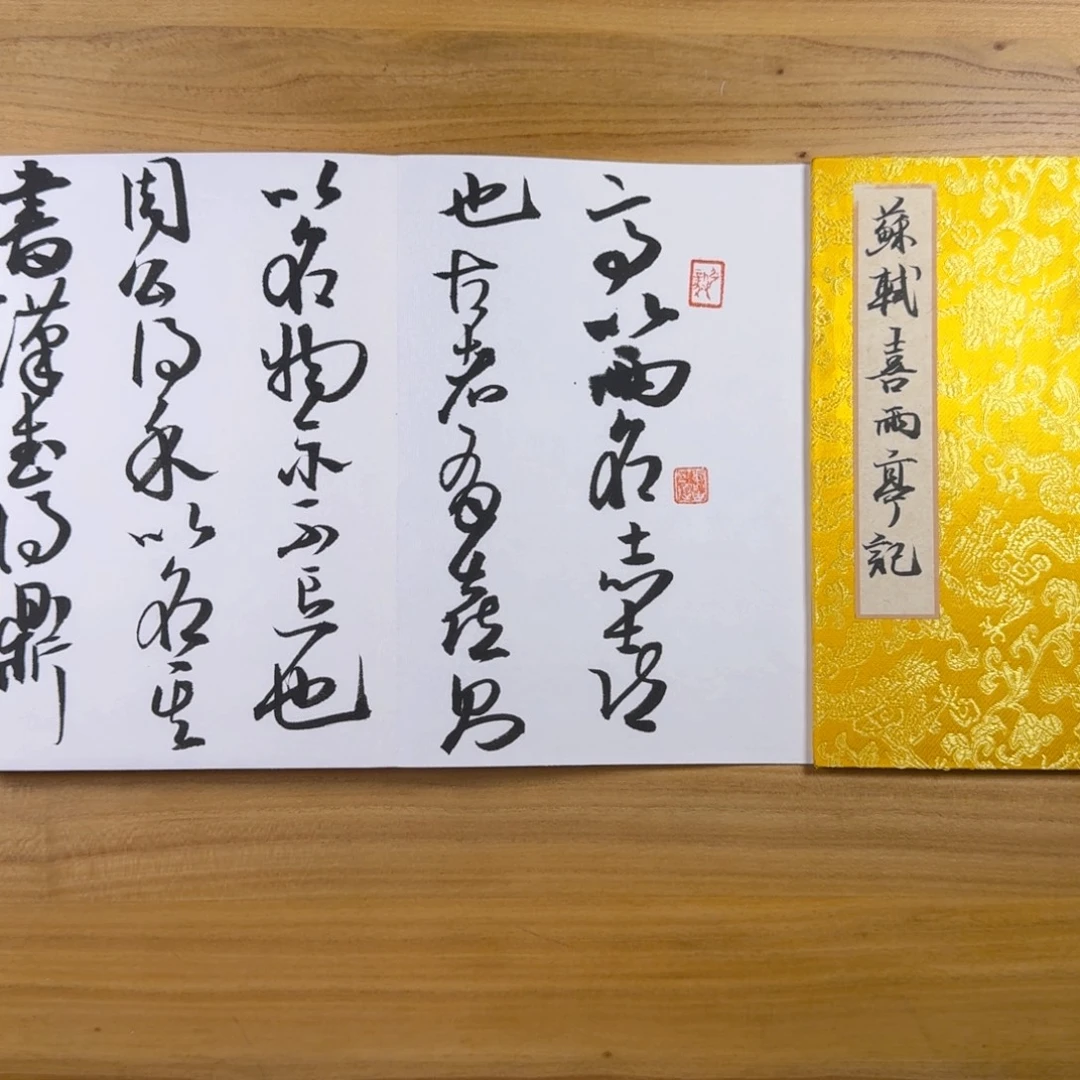 蘇軾喜雨亭記
亭以雨名志喜
也古者有喜則
以名物示不忘也
周公得禾以名其
書漢武得鼎